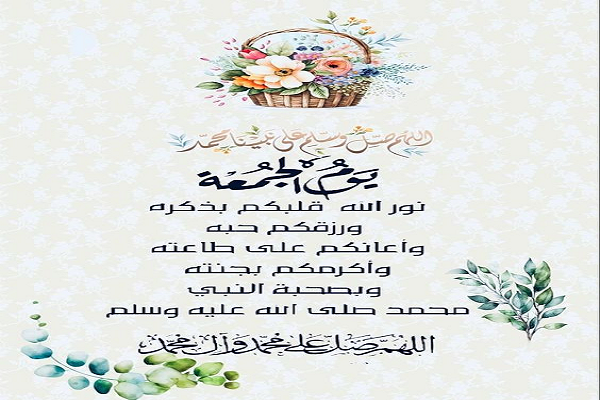 اللهم صل وسلم على نبينا محمد
يوم الجمعة
نور الله قلبكم بذكره
ورزقكم حبه
وأعانكم على طاعته
وأكرمكم بجنته
وبصحبة النبي
محمد صلى الله عليه وسلم
اللهم صل على محمد وآل محمد